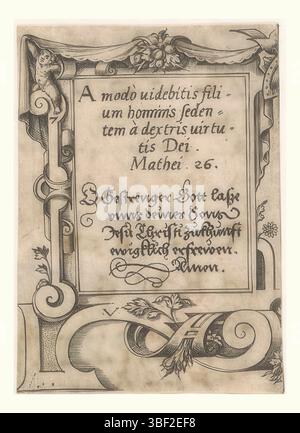 A modo uidebitis fili-
um hominis seden-
tem à dextris uirtu-
tis Dei.
Mathei. 26.
O Gestrenger Gott lasze
vnns deines Sons
Jesu Christi zukhunfft
ewigklich erfrewen.
Amen.
V